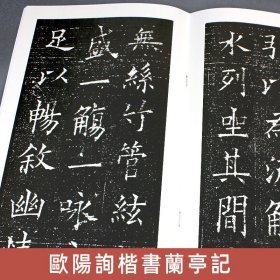 水列坐其間
無絲竹管絃
盛一觴一咏
足以暢敘幽
歐陽詢楷書蘭亭記